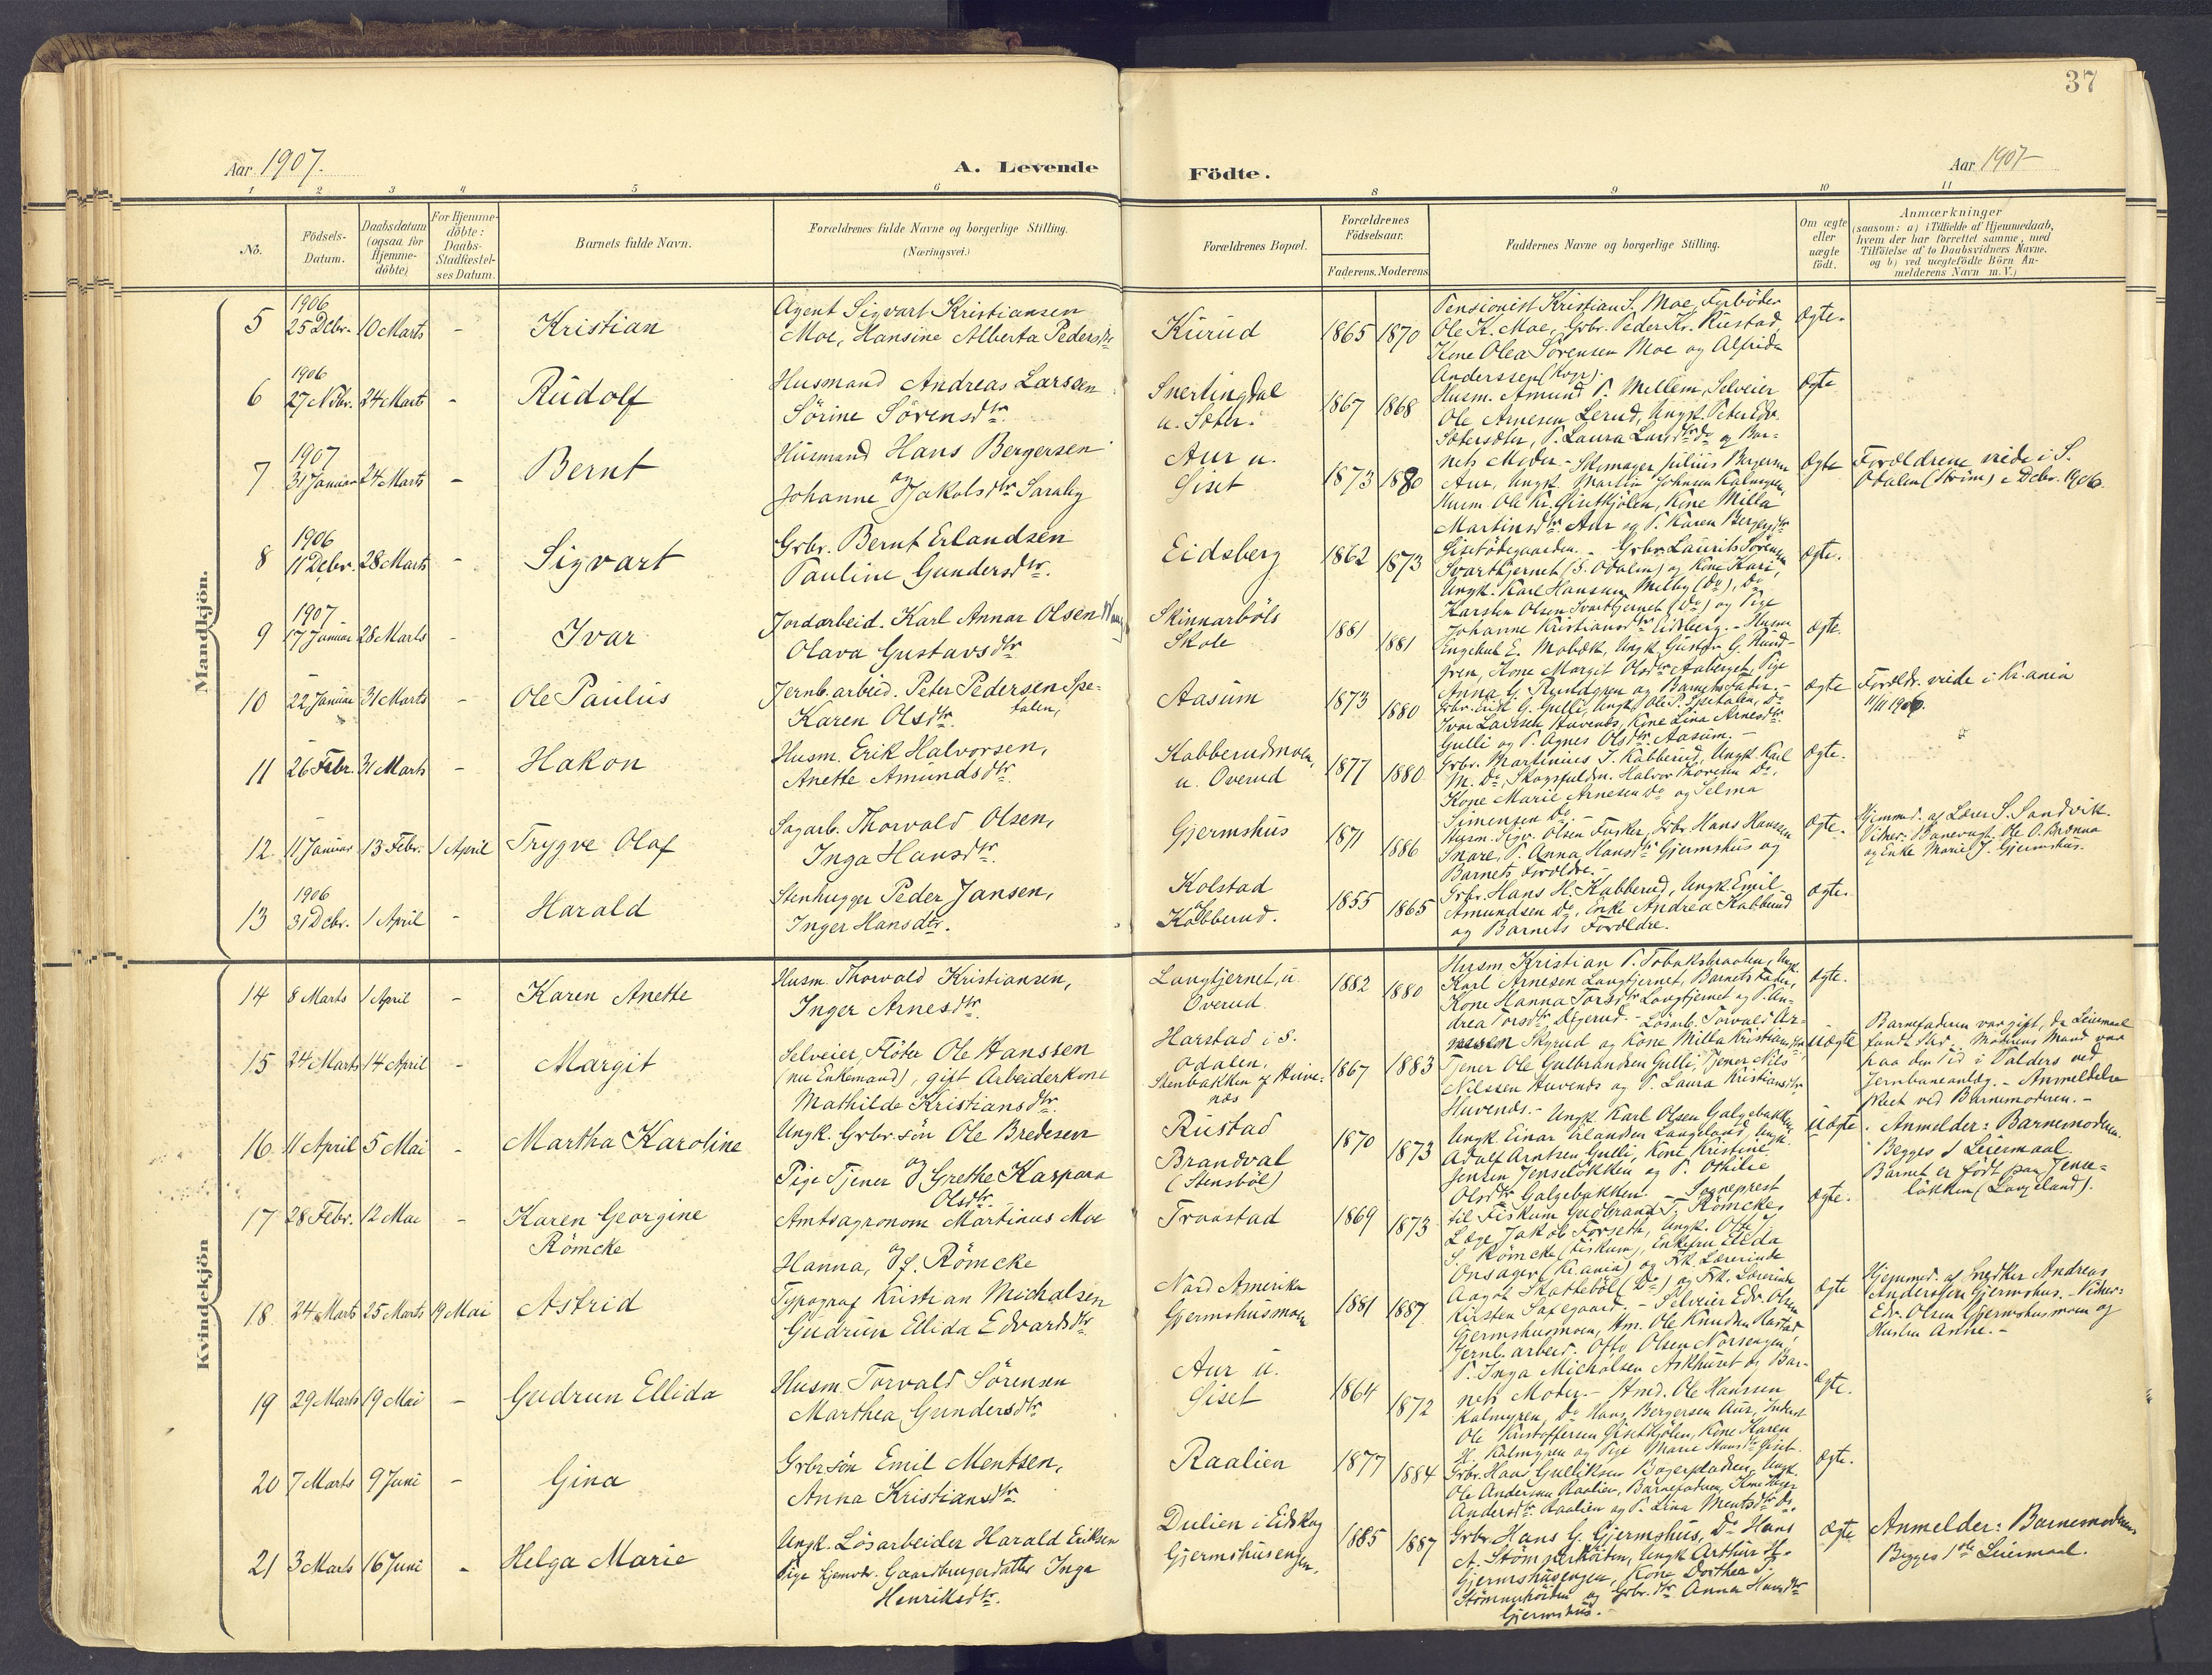 37
Aar 1907.
A. Levende
Födte.
Aar 1907
1 2 3 4 5 6 8 9 10 11
No.
Födsels-
Datum.
Daabsdatum
(ogsaa for
Hjemme-
döbte)
For Hjemme-
döbte:
Daabs-
Stadfæstel-
ses Datum.
Barnets fulde Navn.
Forældrenes fulde Navne og borgerlige Stilling.
(Næringsvei.)
Forældrenes Bopæl.
Forældrenes
Födselsaar.
Faderens. Moderens.
Faddernes Navne og borgerlige Stilling.
Om ægte
eller
uægte
födt.
Anmærkninger
(saasom: a) i Tilfælde af Hjemmedaab,
hvem der har forrettet samme, med
Tilföielse af to Daabsvidners Navne.
og b) ved uægtefödte Börn An-
melderens Navn m. V.)
Mandkjön.
5
1906
25 Dcbr.
10 Marts
-
Kristian
Agent Sigvart Kristiansen
Moe, Hansine Alberta Pedersdtr
Kurud
1865
1870
Pensionist Kristian S. Moe, Forböder
Ole K. Moe, Grbr. Peder Kr. Rustad
Kone Olea Sörensen Moe og Alfrida
Anderssen
Ægte.
6
1906
27 Nvbr.
24 Marts
-
Rudolf
Husmand Andreas Larssen
Sörine Sörensdtr.
Snertingdal
u. Soter.
1867
1868
Husm. Amund P. Mellem, Selveier
Ole Arnesen Lerud, Ungk. Peter Edv.
P. Laura Larsdtr Do og Bar-
nets Moder.
Ægte
7
1907
31 Januar
24 Marts
-
Bernt
Husmand Hans Bergersen
og
Johanne Jakobsdtr Saraby
Aur u.
Siset
1873
1880
Skomager Julius Bergersen
Aur, Ungk. Martin Johnsen Kalmyren,
Husm. Ole Kr. Gisetkjölen, Kone Milla
Martinsdtr. Aur og P. Karen Bergersdtr
Gisetödegaarden.
Ægte
Forældrene viede i S.
Odalen (Ström) i Dcbr. 1906.
8
1906
11 Dcbr.
28 Marts
-
Sigvart
Grbr. Bernt Erlandsen
Pauline Gundersdtr.
Eidsberg
1862
1873
Grbr. Laurits Sörensen
Svarttjernet (S. Odalen) og Kone Kari,
Ungk. Karl Hanssen Melby (Do), Do
Karsten Olsen Svarttjernet (Do) og Pige
Johanne Kristiansdtr Eidsberg.
Ægte.
9
1907
17 Januar
28 Marts
-
Ivar
Jordarbeid. Karl Annar Olsen
Olava Gustavsdtr
Skinnarböls
Skole
1881
1881
Husm
Engebret E. Mobæk, Ungk Gustav G. Rund-
gren, Kone Margit Olsdtr Aaberget, Pige
Anna G. Rundgren og Barnets Fader.
Ægte.
10
22 Januar
31 Marts
-
Ole Paulus
Jernb.arbeid. Peter Pedersen Spe-
talen,
Karen Olsdtr.
Aasum
1873
1880
Grbr. Erik G. Gulli, Ungk. Ole P. Spetalen, Do
Ivar Larssen Huvenes, Kone Lina Arnesdtr.
Gulli og P. Agnes Olsdtr. Aasum.
Ægte
Forældr. viede i Kr.ania
11/11 1906.
11
26 Febr.
31 Marts
-
Hakon
Husm. Erik Halvorsen,
Anette Amundsdtr.
Kabberudmoen,
u. Overud
1877
1880
Grbr. Martinius J. Kabberud, Ungk. Karl
M. Do, Skogsfuldm. Halvor Thoresen Do,
Kone Marie Arnesen Do og Selma
Simensen Do.
Ægte.
12
11 Januar
13 Febr.
1 April
Trygve Olaf
Sagarb. Thorvald Olsen,
Inga Hansdtr.
Gjermshus
1871
1886
Husm. Sigv. Olsen Fusker, Grbr. Hans Hanssen
Snare, P. Anna Hansdtr Gjermshus og
Barnets Forældre.
Ægte.
Hjemmed. af Lærer S. Sandvik.
Vidner: Banevogt. Ole O. Brænna
og Enke Marie J. Gjermshus.
13
1906
31 Dcbr.
1 April
-
Harald
Stenhugger Peder Jansen,
Inger Hansdtr.
Kolstad
af
Kabberud.
1855
1865
Grbr. Hans H. Kabberud, Ungk. Emil
Amundsen Do, Enke Andrea Kabberud
og Barnets Forældre.
Ægte.
Kvindekjön
14
8 Marts
1 April
-
Karen Anette
Husm. Thorvald Kristiansen,
Inger Arnesdtr.
Langtjernet, u.
Overud
1882
1880
Husm. Kristian P. Tobaksbraaten, Ungk.
Karl Arnesen Langtjernet, Barnets Fader,
Kone Hanna Torsdtr Langtjernet og P. An-
drea Torsdtr Digerud.
Ægte.
15
24 Marts
14 April
-
Margit
Selveier, Flöter Ole Hanssen
(nu Enkemand), gift Arbeiderkone
Mathilde Kristiansdtr.
Harstad i S.
Odalen,
Stenbakken af Huve-
næs
1867
1883
Lösarb. Torvald Ar-
nesen Skyrud og Kone Milla Kristiansdtr
Tjener Ole Gulbrandsen Gulli, Tjener Nils
Nilssen Huvenes og P. Laura Kristiansdtr
Huvenes.
Uægte
Barnefaderen var gift, da Leiermaal
fandt Sted. Moderens Mand var
paa den Tid i Valders ved
Jernbaneanlæg. - Anmeldelse
skeet ved Barnemoderen. -
16
11 April
5 Mai
-
Martha Karoline
Ungk. Grbr.sön Ole Bredesen
og
Pige Tjener Grethe Kaspara
Olsdtr.
Rustad
Brandval
(Stensböl)
1870
1873
Ungk. Karl Olsen Galgebakken
Ungk Einar Erlandsen Langeland, Ungk.
Adolf Arntsen Gulli, Kone Kristine
Jensen Jenselökken og P. Othilie
Olsdtr Galgebakken.
Uægte
Anmelder: Barnemoderen.
Begges 1 Leiermaal.
Barnet er födt paa Jense-
lökken (Langeland).
17
28 Febr.
12 Mai
-
Karen Georgine
Römcke
Amtsagronom Martinus Moe
og
Hanna, f. Römcke
Traastad
1869
1873
Sogneprest
til Fiskum Gudbrand T. Römcke,
Læge Jakob Forseth, Ungk. Otto J.
S. Römcke (Fiskum), Enkefru Elida
Onsager (Kr.ania) og Frk. Lærerinde
Aagot Skatteböl (Do) og Frk. Lærerinde
Kirsten Saxegaard.
Ægte.
18
24 Marts
25 Marts
19 Mai
Astrid
Typograf Kristian Michalsen
Gudrun Ellida Edvardsdtr
Nord Amerika
Gjermshusmoen
1881
1887
Selveier Edv. Olsen
Gjermshusmoen, Hm. Ole Knudsen Harstad
Jernb.arbeid. Otto Olsen Norsengen,
P. Inga Michalsen Askhuset og Bar-
nets Moder.
Ægte
Hjemmed. af Snedker Andreas
Andersen Gjermshus. Vidner:
Edv. Olsen Gjermshusmoen og
Hustru Anne. -
19
29 Marts
19 Mai
-
Gudrun Ellida
Husm. Torvald Sörensen
Marthea Gundersdtr
Aur u.
Siset
1864
1872
Hmd. Ole Hanssen
Kalmyren, Do Hans Bergersen Aur, Inderst
Ole Kristoffersen Gisetkjölen, Kone Karen
H. Kalmyren og Pige Marie Hansdtr Giset.
Ægte.
20
7 Marts
9 Juni
-
Gina
Grbr.sön Emil Mentsen,
Anna Kristiansdtr.
Raalien
1877
1884
Grbr. Hans Gulliksen Bogerpladsen, Ungk.
Ole Andersen Raalien, Barnefaderen, Kone Inger
Andersdtr. Raalien og P. Lina Mentsdtr Do.
Ægte.
21
3 Marts
16 Juni
-
Helga Marie
Ungk. Lösarbeider Harald Eriksen
Pige hjemvær. Gaardbrugerdatter Inga
Henriksdtr.
Dulien i Eidskog
Gjermshusengen,
1885
1887
Grbr. Hans G. Gjermshus, Do Hans
A. Strömnerhöiden, Ungk Arthur H.
Gjermshusengen, Kone Dorthea S.
Strömnerhöiden og Grbr.dtr Anna Hansdtr
Gjermshus. -
Ægte
Anmelder: Barnemoderen
Begges 1ste Leiermaal.